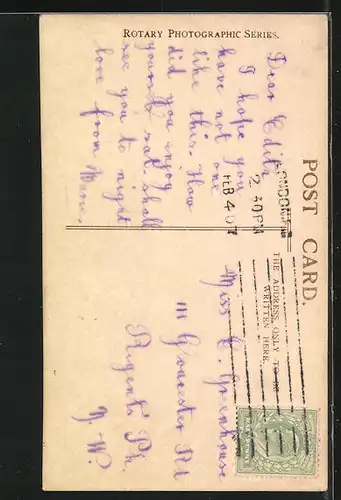 ROTARY PHOTOGRAPHIC SERIES.
POST CARD.
THE ADDRESS ONLY TO BE
WRITTEN HERE.
LONDON
2.30PM
FEB 4 07
Dear Edith
I hope you
have not one
like this. How
did you enjoy
yourself sat. shall
see you to night
love from
Miss E. Greenhouse
111 Gloucester Rd
Regents Pk.
N.W.